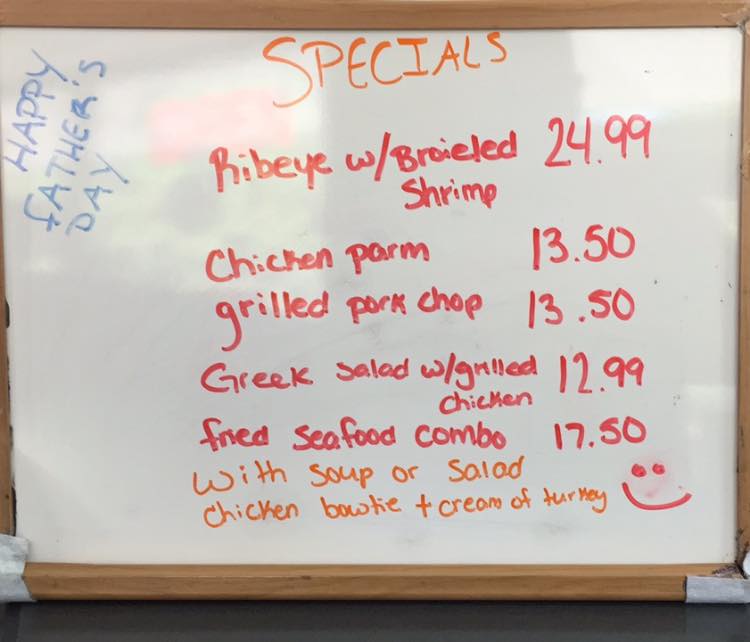 HAPPY
FATHER'S
DAY
SPECIALS
Ribeye w/Braieled 24.99
Shrimp
Chicken parm 13.50
grilled pork chop 13.50
Greek salad w/grilled 12.99
chicken
fried seafood combo 17.50
with soup or salad
chicken bowtie + cream of turkey